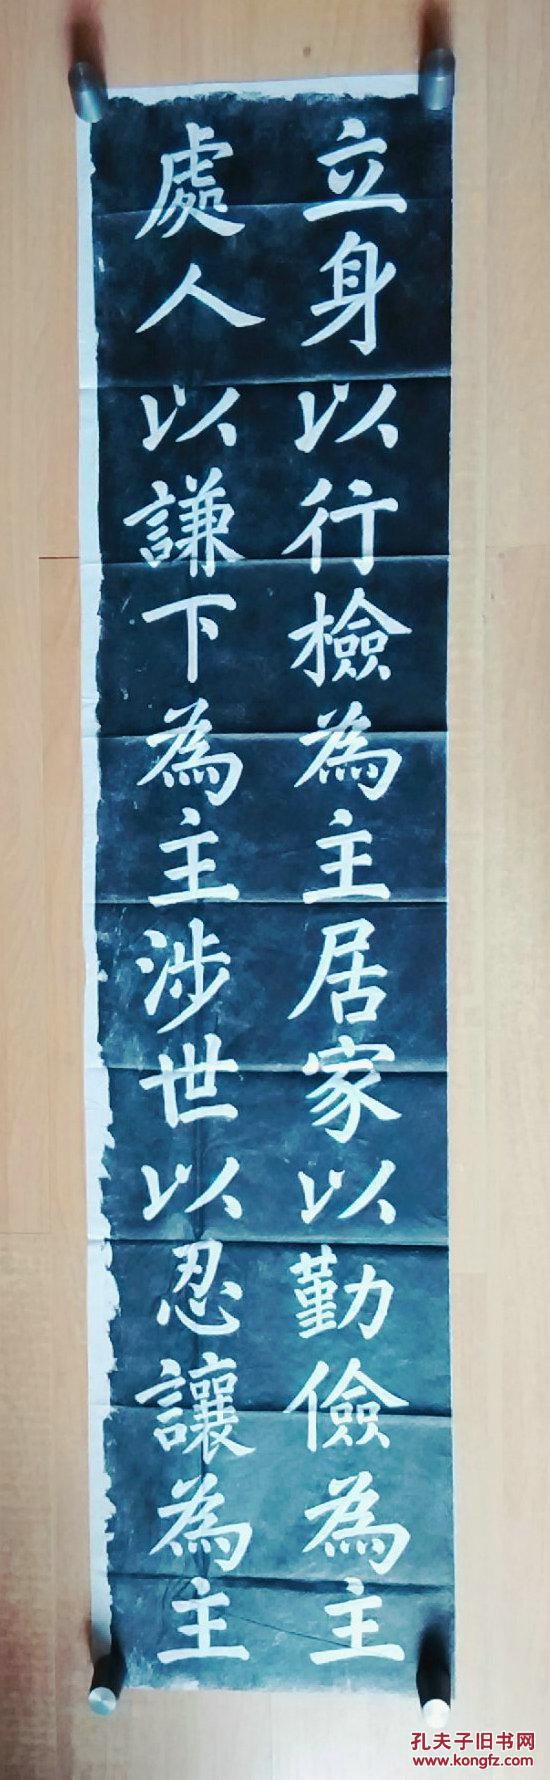 立身以行檢為主居家以勤儉為主
處人以謙下為主涉世以忍讓為主
孔夫子旧书网
www.kongfz.com